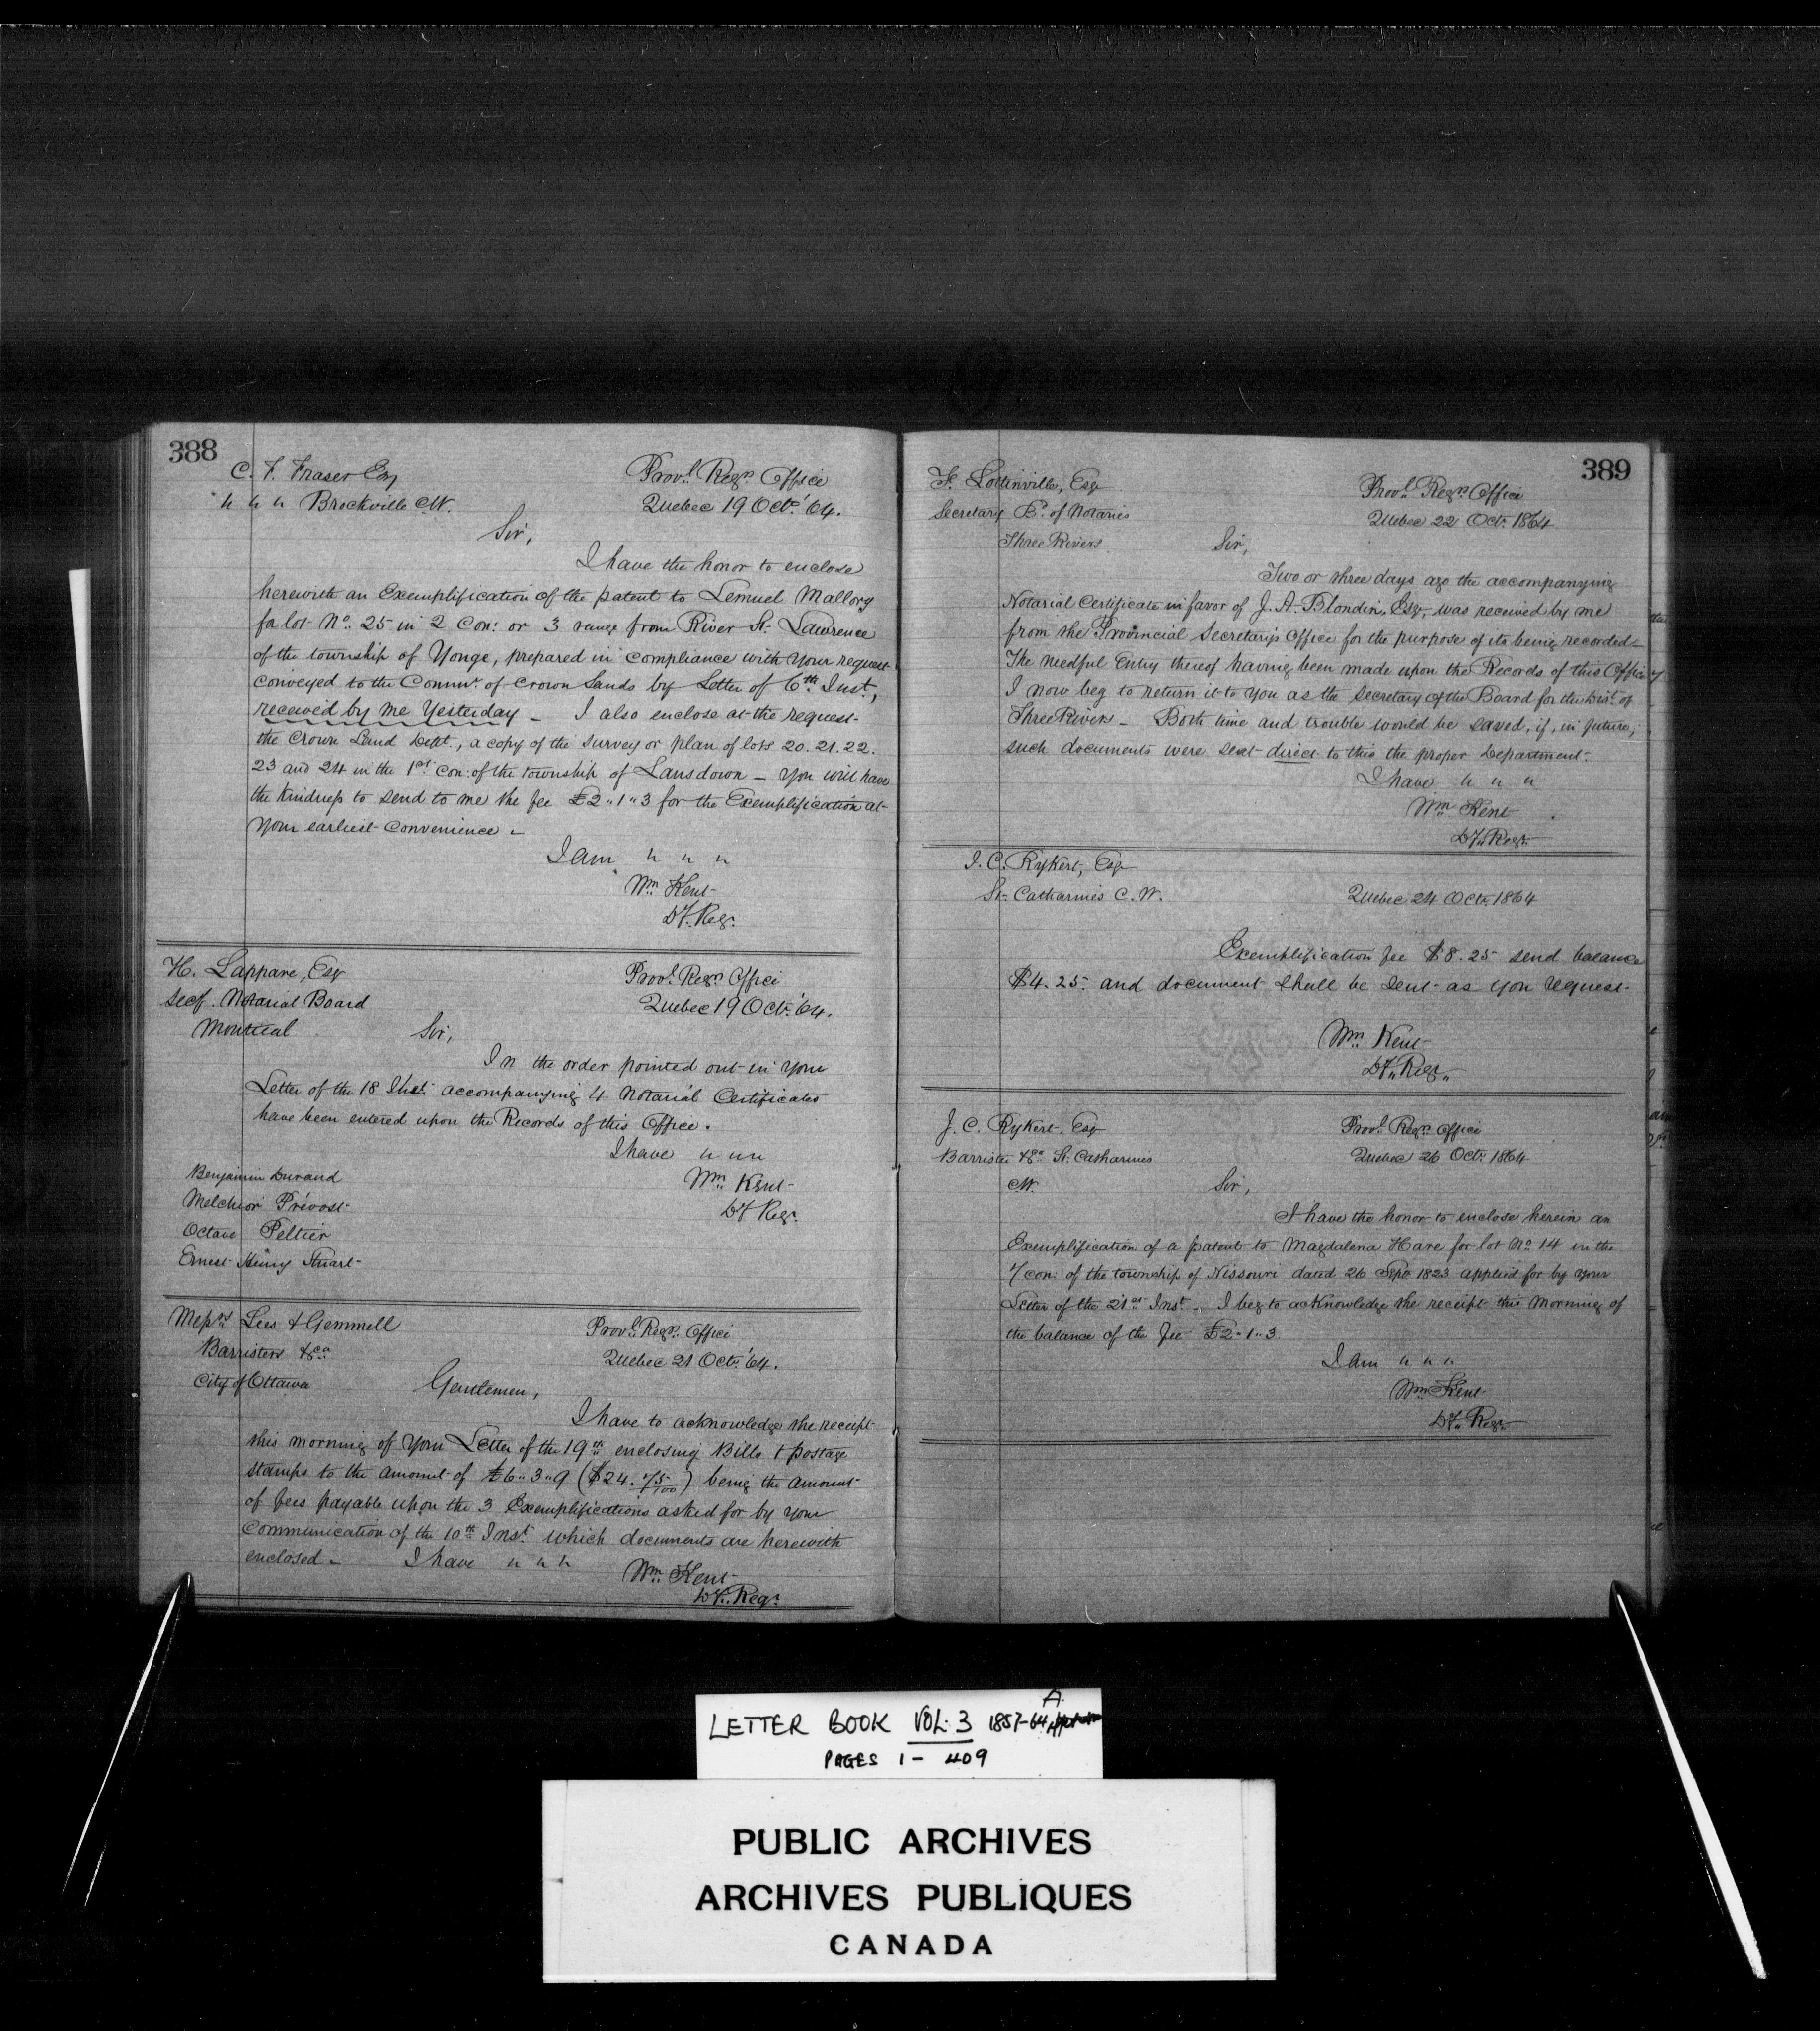 388
C. F. Fraser Esq
" " " Brockville C.W.
Provl. Regrs. Office
Quebec 19 Octr. '64.
Sir,
I have the honor to enclose
herewith an Exemplification of the patent to Lemuel Mallory
for lot No. 25 in 2 Con: or 3 range from River St. Lawrence
of the township of Yonge, prepared in compliance with your request
conveyed to the Commr. of Crown Lands by Letter of 6th Inst.,
received by me Yesterday – I also enclose at the request
the Crown Land Dept., a copy of the survey or plan of lots 20. 21. 22.
23 and 24 in the 1st Con: of the township of Lansdown – You will have
the kindness to send to me the fee £2 " 1 " 3 for the Exemplification at
Your earliest convenience –
I am " " "
Wm. Kent
Dy. Regr.
H. Lappare, Esqr
Secy. Notarial Board
Montreal
Provl. Regrs. Office
Quebec 19 Octr. '64.
Sir,
In the order pointed out in your
Letter of the 18 Inst. accompanying 4 Notarial Certificates
have been entered upon the Records of this Office.
I have " " "
Wm. Kent
Dy Regr.
Benjamin Durand
Melchior Prévost
Octave Peltier
Ernest Henry Stuart
Messrs. Lees & Gemmell
Barristers &ca
City of Ottawa
Provl. Regrs. Office
Quebec 21 Octr. '64.
Gentlemen,
I have to acknowledge the receipt
this morning of Your Letter of the 19th enclosing Bills & postage
stamps to the amount of £6 " 3 " 9 ($24. 75/100) being the amount
of fees payable upon the 3 Exemplifications asked for by your
Communication of the 10th Inst. which documents are herewith
enclosed – I have " " "
Wm. Kent
Dy. Regr.
389
F. Lottinville, Esqr
Secretary Bd. of Notaries
Three Rivers
Provl. Regrs. Office
Quebec 22 Octr. 1864
Sir,
Two or three days ago the accompanying
Notarial Certificate in favor of J. A. Blondin, Esqr, was received by me
from the Provincial Secretary's Office for the purpose of its being recorded –
The needful Entry thereof having been made upon the Records of this Office
I now beg to return it to you as the Secretary of the Board for the Dist. of
Three Rivers – Both time and trouble would be saved, if, in future,
such documents were sent direct to this the proper Department.
I have " " "
Wm Kent
Dy. Regr.
J. C. Rykert, Esqr
St. Catharines C. W.
Quebec 24 Octr. 1864
Exemplification fee $8.25 send balance
$4.25 and document shall be sent as you request.
Wm. Kent
Dy. Regr.
J. C. Rykert, Esqr
Barrister &ca St. Catharines
CW.
Provl. Regrs. Office
Quebec 26 Octr. 1864
Sir,
I have the honor to enclose herein an
Exemplification of a patent to Magdalena Hare for lot No. 14 in the
7 con: of the township of Nissouri dated 26 Sepr 1823 applied for by your
Letter of the 21st Inst. I beg to acknowledge the receipt this Morning of
the balance of the fee £2 " 1 " 3.
I am " " "
Wm Kent
Dy. Regr.
LETTER BOOK VOL. 3 1857-64 A
PAGES 1 - 409
PUBLIC ARCHIVES
ARCHIVES PUBLIQUES
CANADA